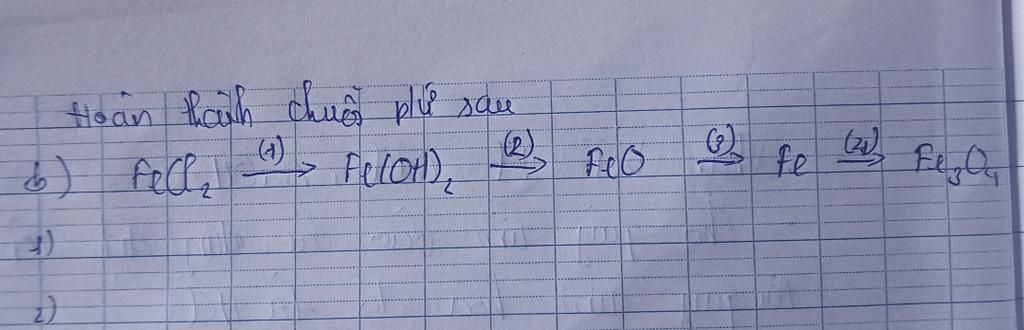 Hoàn thành chuỗi pứ sau
b) FeCl₂ (1)→ Fe(OH)₂ (2)→ FeO (3)→ Fe (4)→ Fe₃O₄
1)
2)